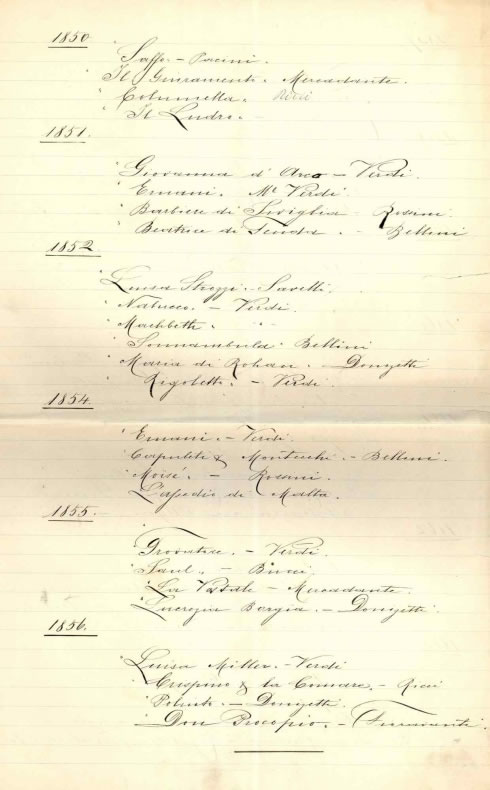 1850
Saffo - Pacini.
Il Giuramento. Mercadante.
Columella. Ricci
Il Ludro. -
1851.
Giovanna d'Arco - Verdi.
Ernani. Mo Verdi
Barbiere di Siviglia - Rossini.
Beatrice di Tenda. - Bellini
1852
Luisa Strozzi. - Sanelli.
Nabucco. - Verdi.
Machbeth. " "
Sonnambula. Bellini
Maria di Rohan. - Donizetti
Rigoletto. - Verdi
1854.
Ernani. - Verdi.
Capuleti & Montecchi. - Bellini.
Moisé. - Rossini.
L'assedio di Malta.
1855.
Trovatore. - Verdi.
Saul. -
La Vestale - Mercadante.
Lucrezia Borgia. - Donizetti
1856.
Luisa Miller. - Verdi
Crispino & la Comare. - Ricci
Poliuto - Donizetti
Don Procopio. - Fioravanti.